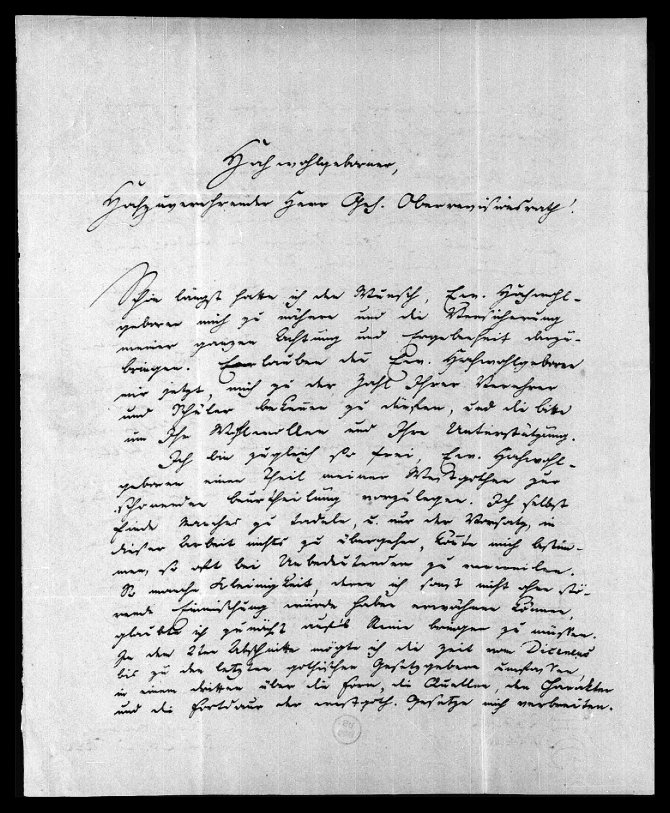 Hochwohlgeborner,
Hochzuverehrender Herr Geh. Oberrevisionsrath!
Schon längst hatte ich den Wunsch, Ew. Hochwohl-
geboren mich zu nähern und die Versicherung
meiner ganzen Achtung und Ergebenheit darzu-
bringen. Erlauben Ew. Hochwohlgeboren
mir jetzt, mich zu der Zahl Ihrer Verehrer
und Schüler bekennen zu dürfen, und die Bitte
um Ihr Wohlwollen und Ihre Unterstützung.
Ich bin zugleich so frei, Ew. Hochwohl-
geboren einen Theil meiner Westgothen zur
schonenden Beurtheilung vorzulegen. Ich selbst
finde Manches zu tadeln, u. nur der Vorsatz, in
dieser Arbeit nichts zu übergehen, konnte mich bestim-
men, so oft bei Unbedeutendem zu verweilen.
So manche Kleinigkeit, deren ich sonst nicht ohne stö-
rende Einmischung würde haben erwähnen können,
glaubte ich zunächst aufs Reine bringen zu müssen.
In dem 2ten Abschnitte möchte ich die Zeit von
bis zu den letzten gothischen Gesetzgebern umfassen,
in einem dritten über die Form, die Quellen, den Charakter
und die Fortdaur der westgoth. Gesetze mich verbreiten.